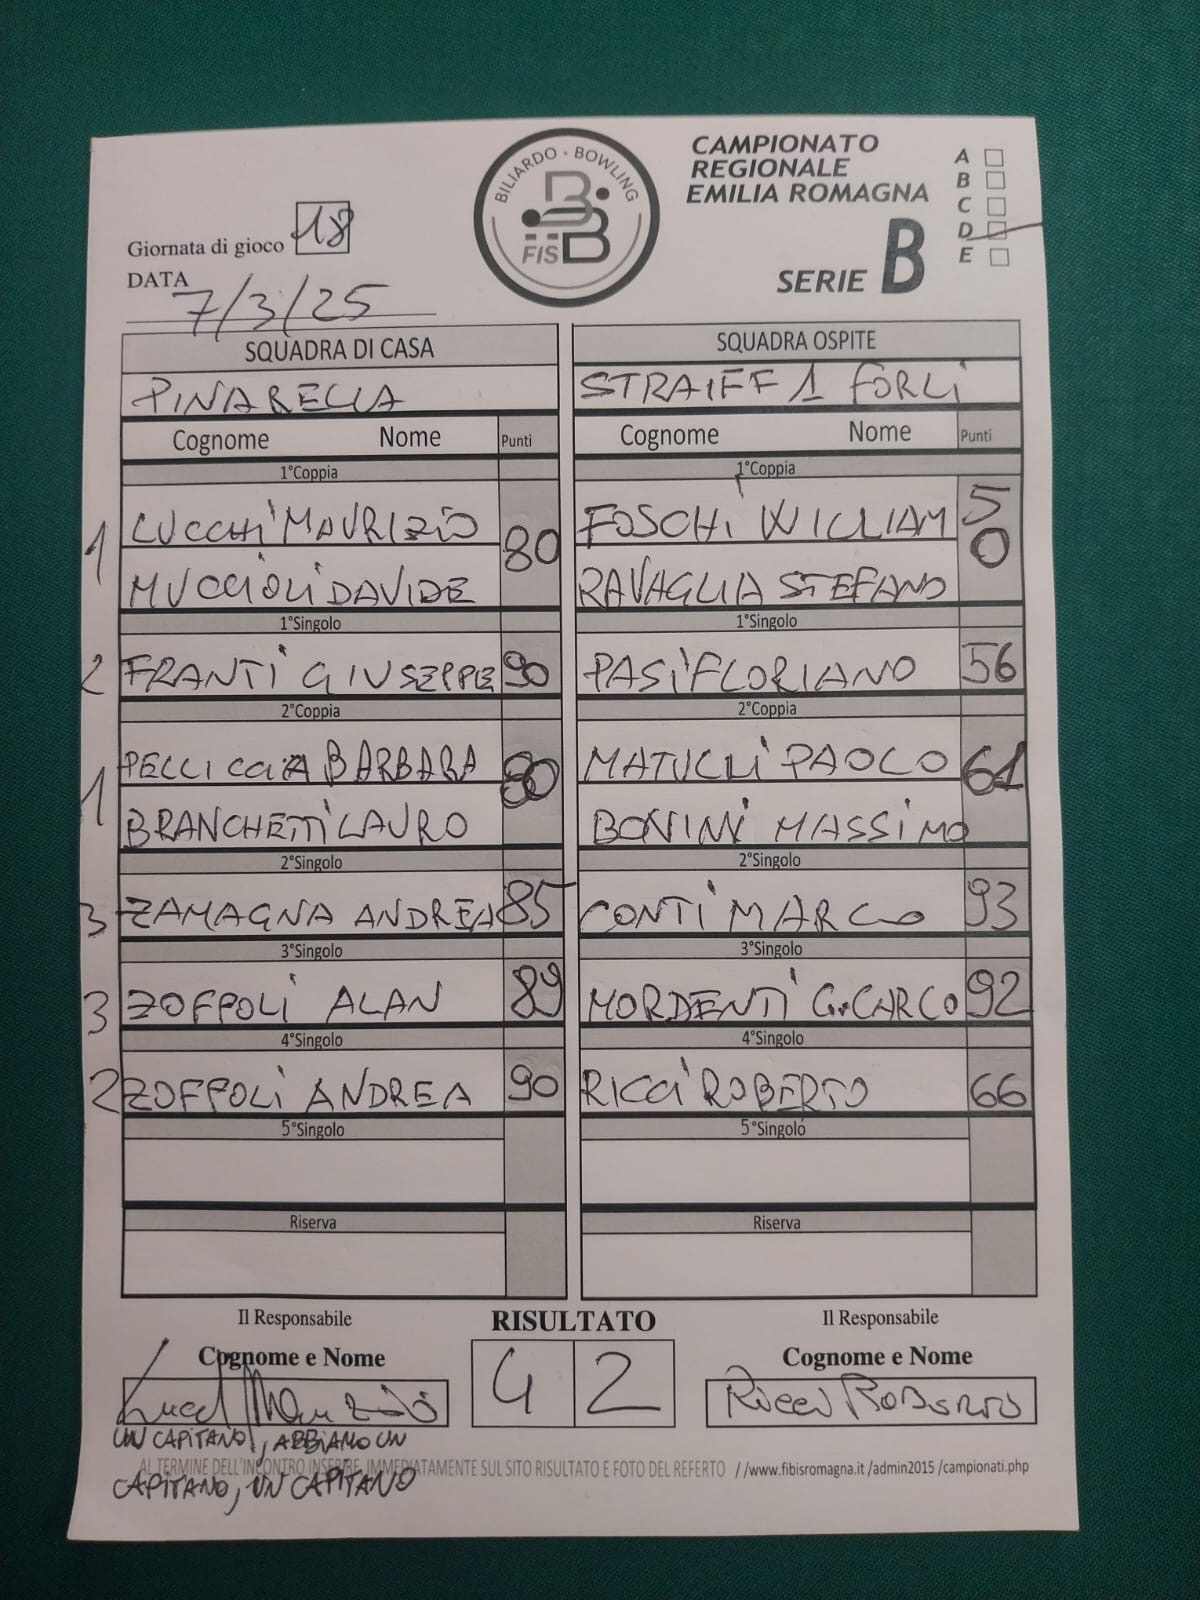 BILIARDO - BOWLING
FISBB
CAMPIONATO
REGIONALE
EMILIA ROMAGNA
SERIE B
A
B
C
D
E
Giornata di gioco 18
DATA
7/3/25
SQUADRA DI CASA SQUADRA OSPITE
PINARELLA STRAIFF 1 FORLI
Cognome Nome Punti Cognome Nome Punti
1°Coppia 1°Coppia
1 LUCCHI MAURIZIO 80 FOSCHI WILLIAM 50
MUCCIOLI DAVIDE RAVAGLIA STEFANO
1°Singolo 1°Singolo
2 FRANTI GIUSEPPE 90 PASI FLORIANO 56
2°Coppia 2°Coppia
1 PELLICCIA BARBARA 80 MATULLI PAOLO 61
BRANCHETTI LAURO BONINI MASSIMO
2°Singolo 2°Singolo
3 ZAMAGNA ANDREA 85 CONTI MARCO 93
3°Singolo 3°Singolo
3 ZOFFOLI ALAN 89 MORDENTI G.CARLO 92
4°Singolo 4°Singolo
2 ZOFFOLI ANDREA 90 RICCI ROBERTO 66
5°Singolo 5°Singolo
Riserva Riserva
Il Responsabile RISULTATO Il Responsabile
Cognome e Nome 4 2 Cognome e Nome
Lucchi Maurizio Ricci Roberto
UN CAPITANO, ABBIAMO UN
AL TERMINE DELL'INCONTRO INSERIRE IMMEDIATAMENTE SUL SITO RISULTATO E FOTO DEL REFERTO //www.fibisromagna.it /admin2015 /campionati.php
CAPITANO, UN CAPITANO